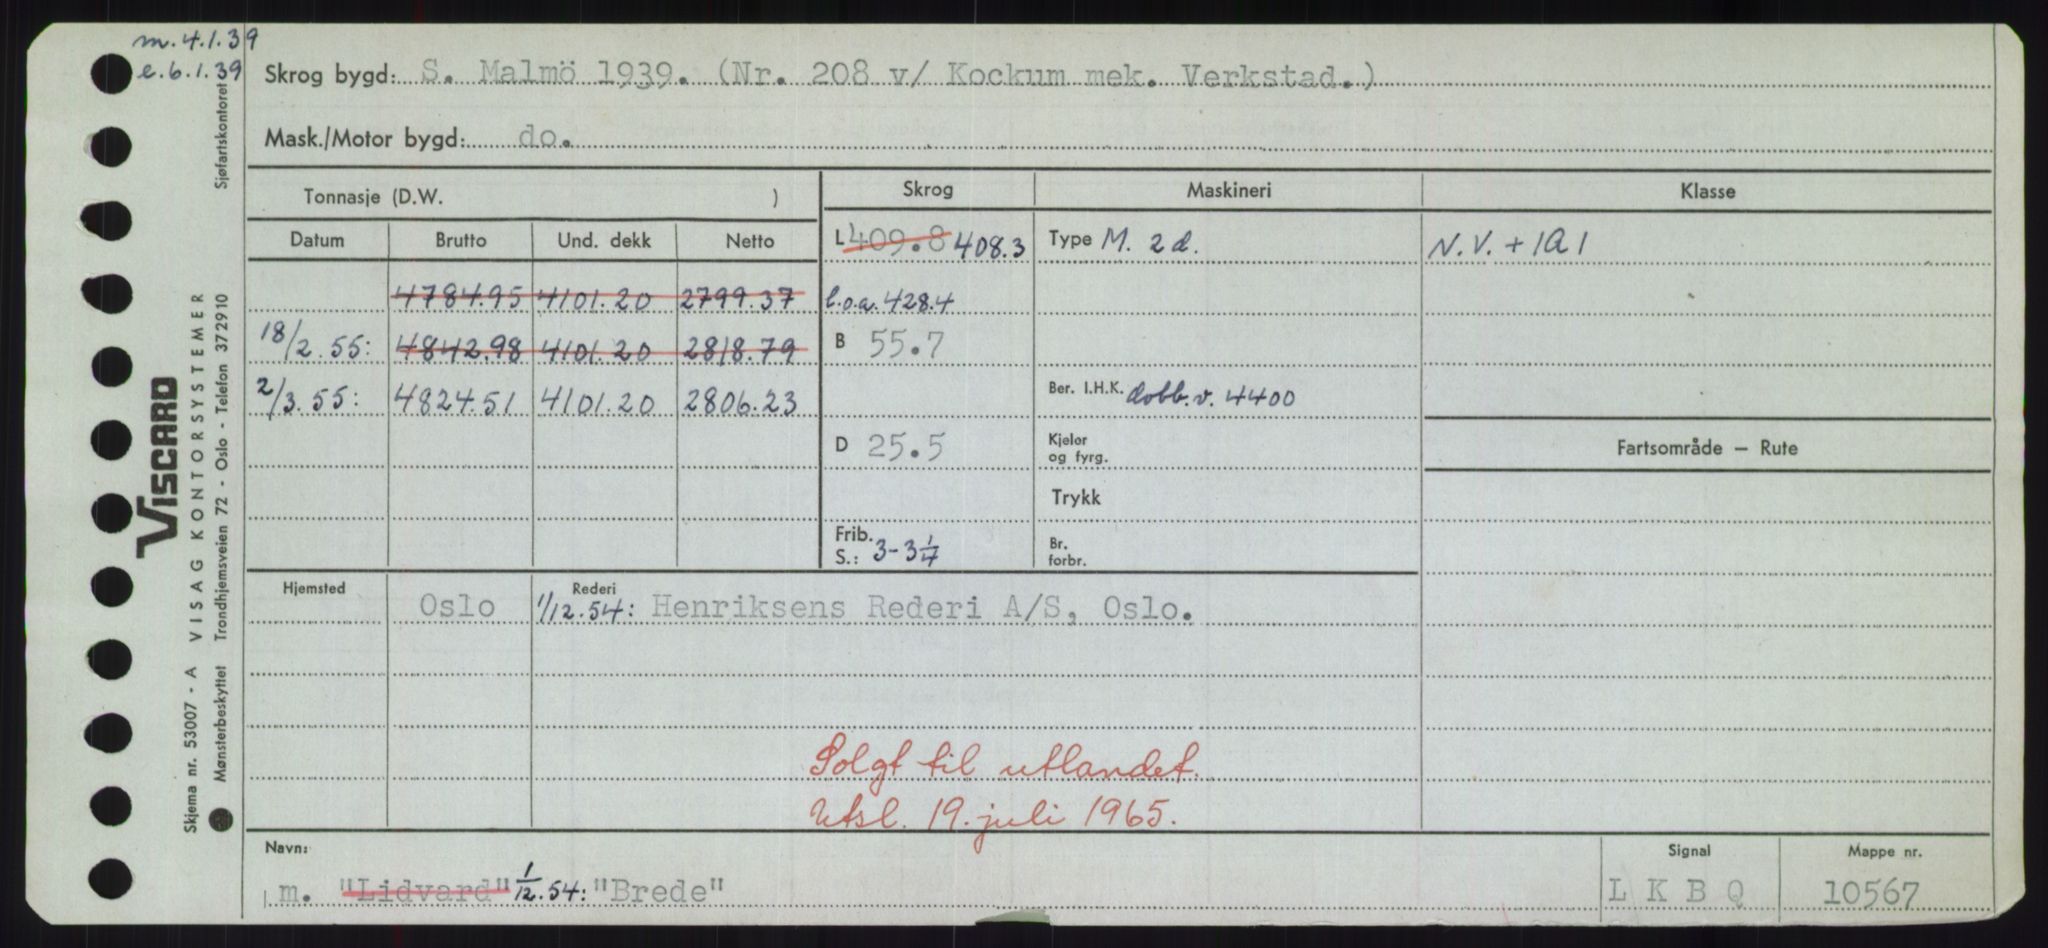 m. 4.1.39
e. 6.1.39
Skrog bygd: S. Malmö 1939. (Nr. 208 v/ Kockum mek. Verkstad.)
Mask./Motor bygd: do.
Tonnasje (D.W. )
Skrog Maskineri Klasse
Datum Brutto Und. dekk Netto
L 409.8 408.3 Type M. 2 d. N.V. + 1A1
4784.95 4101.20 2799.37 l.o.a. 428.4
18/2.55: 4842.98 4101.20 2818.79 B 55.7
2/3.55: 4824.51 4101.20 2806.23 Ber. I.H.K. dobb.v. 4400
D 25.5 Kjeler og fyrg. Fartsområde — Rute
Trykk
Frib. S.: 3-3 1/4 Br. forbr.
Hjemsted Oslo Rederi 1/12.54: Henriksens Rederi A/S, Oslo.
Solgt til utlandet.
Utsl. 19. juli 1965.
Navn: Signal Mappe nr.
m. "Lidvard" 1/12.54: "Brede" L K B Q 10567
Skjema nr. 53007 - A VISAG KONTORSYSTEMER
VISCARD
Mønsterbeskyttet Trondhjemsveien 72 - Oslo - Telefon 372910 Sjøfartskontoret